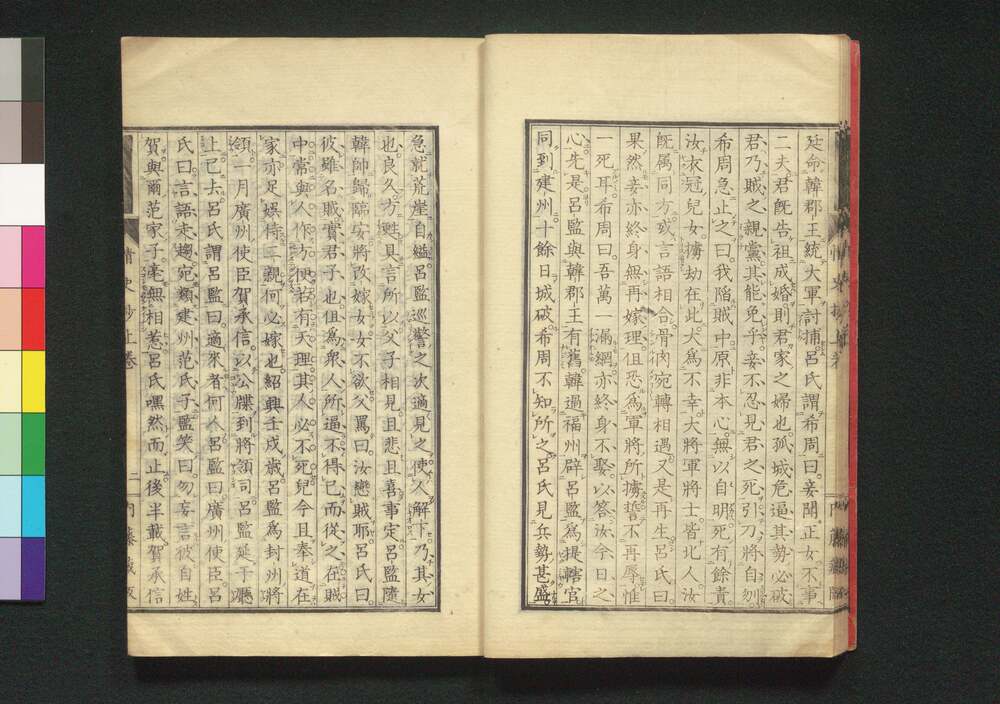 廷命韓郡王統大軍討捕呂氏謂希周曰妾聞正女不事
二夫君旣告祖成婚則君家之婦也孤城危逼其勢必破
君乃賊之親黨其能免乎妾不忍見君之死引刀將自刎
希周急止之曰我陷賊中原非本心無以自明死有餘責
汝衣冠兒女擄劫在此大爲不幸大將軍將士皆北人汝
旣属同方或言語相合骨肉宛轉相遇又是再生呂氏曰
果然妾亦終身無再嫁理但恐爲軍將所擄誓不再辱惟
一死耳希周曰吾萬一漏網亦終身不娶以答汝今日之
心先是呂監與韓郡王有舊韓過福州辟呂監爲提轄官
同到建州十餘日城破希周不知所之呂氏見兵勢甚盛
急就荒崖自縊呂監巡警之次適見之使人解下乃其女
也良久方甦具言所以父子相見且悲且喜事定呂監隨
韓帥歸臨安將改嫁女女不欲父罵曰汝戀賊耶呂氏曰
彼雖名賊實君子也但爲衆人所逼不得已而從之在賊
中常與人作方便若有天理其人必不死兒今且奉道在
家亦足娛侍二親何必嫁也紹興壬戌歲呂監爲封州將
領一月廣州使臣賀承信以公牒到將領司呂監延于廳
上已去呂氏謂呂監曰適來者何人呂監曰廣州使臣呂
氏曰言語走趨宛類建州范氏子監笑曰勿妄言彼自姓
賀與爾范家子毫無相惹呂氏嘿然而止後半載賀承信
情史抄上卷
二